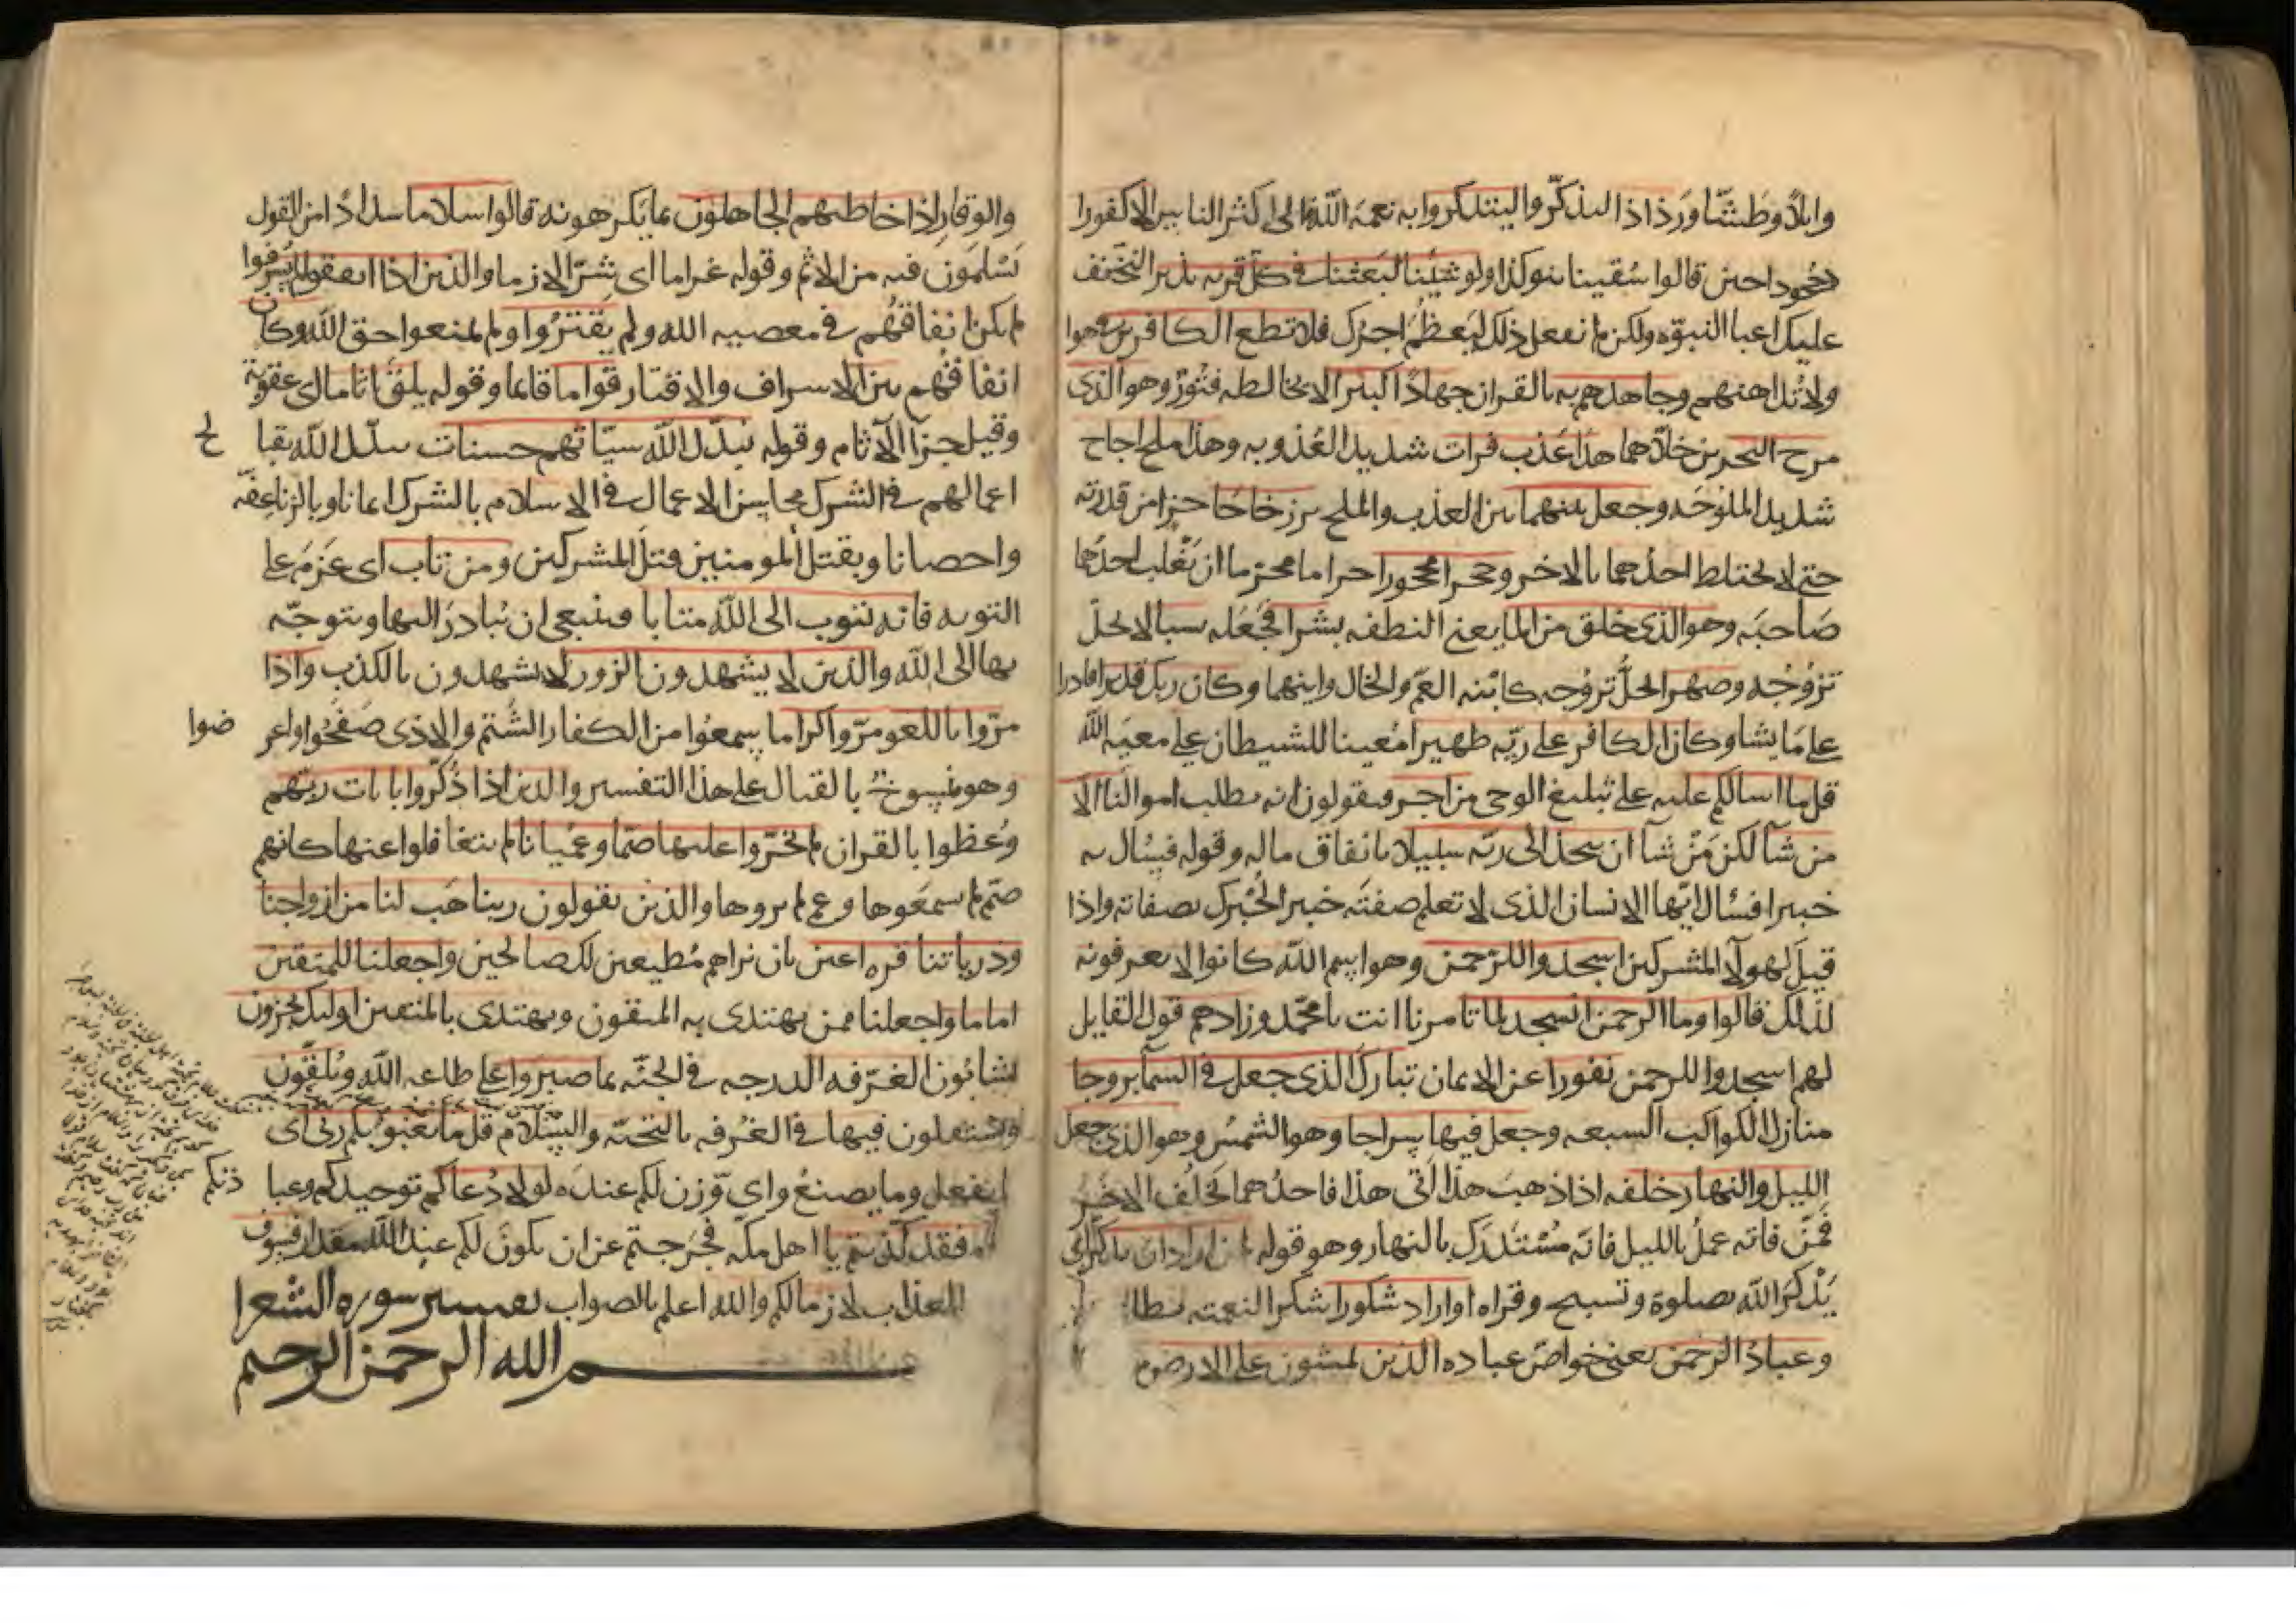 وابلا وطشا ورذاذا ليذكروا ليتذكروا به نعمة الله فابى اكثر الناس الا كفورا
جحودا حين قالوا سقينا بنوكذا ولو شئنا لبعثنا في كل قرية نذيرا لنخفف
عليك اعبا النبوه ولكن لم نفعل ذلك ليعظم اجرك فلا تطع الكافرين في هواهم
ولا تداهنهم وجاهدهم به بالقران جهادا كبيرا لا يخالطه فتور وهو الذي
مرج البحرين خلاهما هذا عذب فرات شديد العذوبه وهذا ملح اجاج
شديد الملوحه وجعل بينهما بين العذب والملح برزخا حاجزا من قدرته
حتى لا يختلط احدهما بالاخر وحجرا محجورا حراما محرما ان يغلب احدهما
صاحبه وهو الذي خلق من الما يعني النطفه بشرا فجعله نسبا لا يحل
تزوجه وصهرا يحل تزوجه كابنه العم والخال وابنهما وكان ربك قديرا قادرا
على ما يشا وكان الكافر على ربه ظهيرا معينا للشيطان على معصيه الله
قل ما اسالكم عليه على تبليغ الوحي من اجر فيقولون انه يطلب اموالنا الا
من شا لكن من شا ان يتخذ الى ربه سبيلا بانفاق ماله وقوله فسال به
خبيرا فسال ايها الانسان الذي لا تعلم صفته خبيرا يخبرك بصفاته واذا
قيل لهولا المشركين اسجدوا للرحمن وهو اسم الله كانوا لا يعرفونه
لذلك قالوا وما الرحمن انسجد لما تامرنا انت يا محمد وزادهم قول القايل
لهم اسجدوا للرحمن نفورا عن الايمان تبارك الذي جعل في السما بروجا
منازل الكواكب السبعه وجعل فيها سراجا وهو الشمس وهو الذي جعل
الليل والنهار خلفه اذا ذهب هذا اتى هذا فاحدهما يخلف الاخر
فمن فاته عمل بالليل فانه مستدرك بالنهار وهو قوله لمن اراد ان يذكر اي
يذكر الله بصلوة وتسبيح وقراه او اراد شكورا شكرا لنعمته
وعباد الرحمن يعني خواص عباده الذين يمشون على الارض
والوقار واذا خاطبهم الجاهلون بما يكرهونه قالوا سلاما سدادا من القول
يسلمون فيه من الاثم وقوله غراما اي شرا لازما والذين اذا انفقوا لم يسرفوا
لم يكن انفاقهم في معصيه الله ولم يقتروا ولم يمنعوا حق الله وكان
انفاقهم بين الاسراف والاقتار قواما قايما وقوله يلق اثاما اي عقوبة
وقيل جزا الاثام وقوله يبدل الله سيئاتهم حسنات يبدل الله بقبايح
اعمالهم في الشرك محاسن الاعمال في الاسلام بالشرك ايمانا وبالزنا عفه
واحصانا وبقتل المومنين قتل المشركين ومن تاب اي عزم على
التوبه فانه يتوب الى الله متابا فينبغي ان يبادر اليها ويتوجه
بها الى الله والذين لا يشهدون الزور لا يشهدون بالكذب واذا
مروا باللغو مروا كراما سمعوا من الكفار الشتم والاذى صفحوا واعرضوا
وهو منسوخ بالقتال على هذا التفسير والذين اذا ذكروا بايات ربهم
وعظوا بالقران لم يخروا عليها صما وعميانا لم يتغافلوا عنها كانهم
صم لم يسمعوها وعمي لم يروها والذين يقولون ربنا هب لنا من ازواجنا
وذرياتنا قره اعين بان نراهم مطيعين لك صالحين واجعلنا للمتقين
اماما واجعلنا ممن يهتدي به المتقون ويهتدي بالمتقين اوليك يجزون
يثابون الغرفه الدرجه في الجنه بما صبروا على طاعه الله ويلقون
ويستقبلون فيها في الغرفه بالتحيه والسلام قل ما يعبؤ بكم ربي اي
ما يفعل وما يصنع واي وزن لكم عنده لولا دعاكم توحيدكم وعبادتكم
فقد كذبتم يا اهل مكه فخرجتم عن ان يكون لكم عند الله مقدار فسوف
العذاب لازما لكم والله اعلم بالصواب تفسير سوره الشعرا
بسم الله الرحمن الرحيم